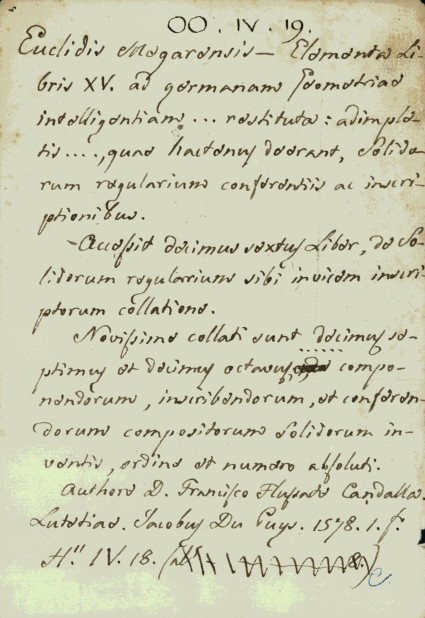 OO . IV . 19.
Euclidis Megarensis — Elementa Li-
bris XV. ad germanam Geometriae
intelligentiam ... restituta : adimple-
tis ...., quae hactenus deerant, solido-
rum regularium conferentiis ac inscri-
ptionibus.
- Accessit decimus sextus Liber, de So-
lidorum regularium sibi invicem inscri-
ptorum collatione.
Novissime collati sunt decimus se-
ptimus et decimus octavus, compo-
nendorum, inscribendorum, et conferen-
dorum compositorum solidorum in-
ventis, ordine et numero absoluti.
Authore D. Francisco Flussate Candalla.
Lutetiae. Jacobus Du Puys. 1578. 1. f.
H." IV. 18.